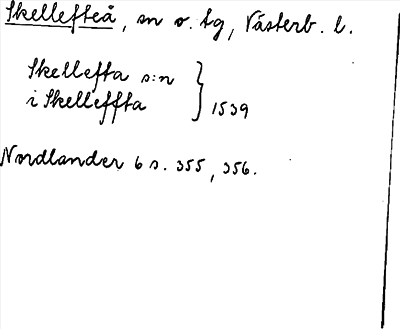 Skellefteå, sn o. tg, Västerb. l.
Skellefta s:n
i Skelleffta } 1539
Nordlander 6 s. 355, 356.